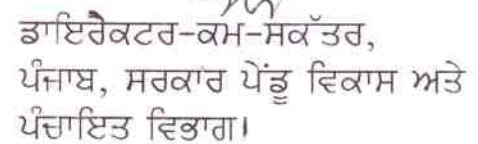 ਡਾਇਰੈਕਟਰ-ਕਮ-ਸਕੱਤਰ,
ਪੰਜਾਬ, ਸਰਕਾਰ ਪੇਂਡੂ ਵਿਕਾਸ ਅਤੇ
ਪੰਚਾਇਤ ਵਿਭਾਗ।